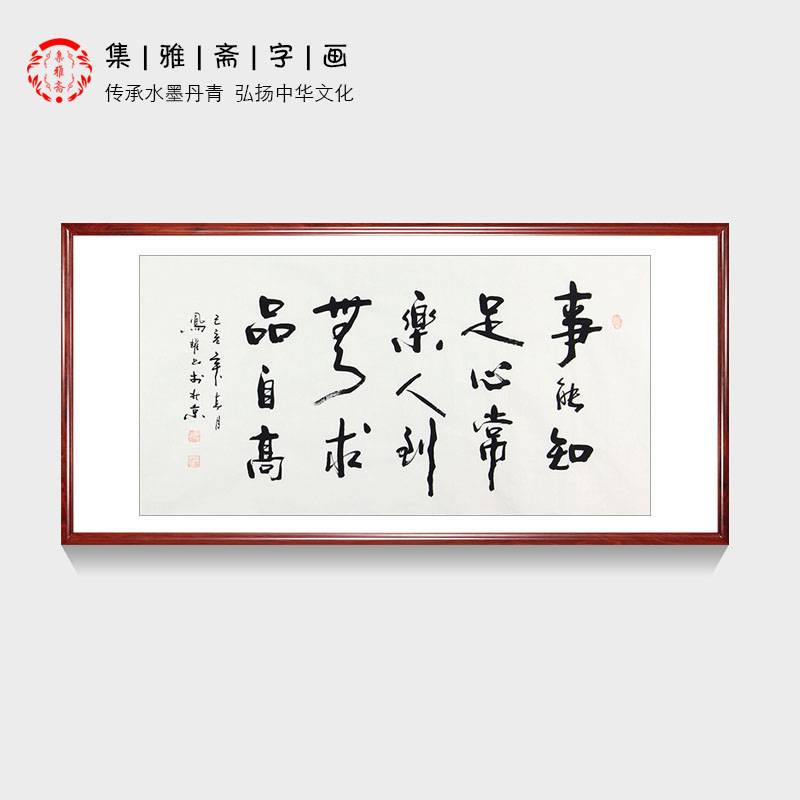 集|雅|斋|字|画
传承水墨丹青 弘扬中华文化
集雅斋
事能知
足心常
樂人到
無求
品自高
己亥年春月
鳳雅书於北京